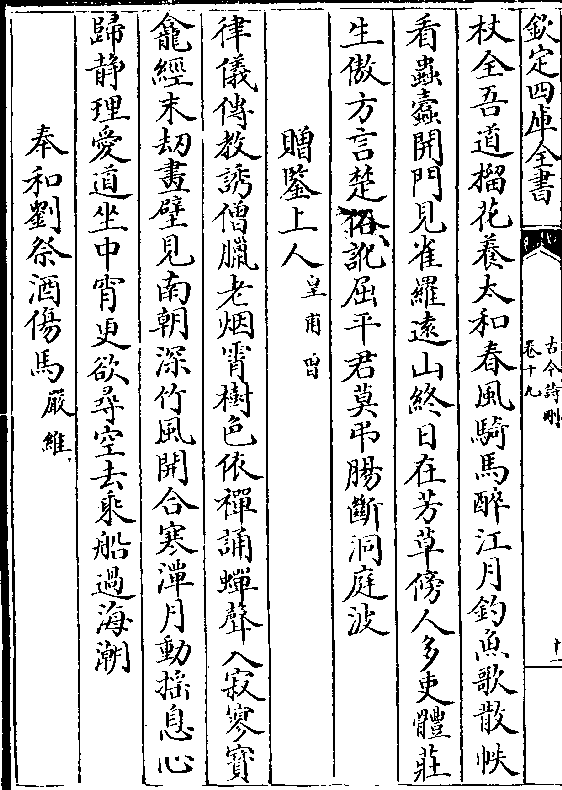 欽定四庫全書
古今詩刪
卷十九
十一
杖全吾道榴花養太和春風騎馬醉江月釣魚歌散帙
看蟲蠧開門見雀羅遠山終日在芳草傍人多吏體莊
生傲方言楚俗訛屈平君莫弔腸斷洞庭波
贈鑒上人皇甫曾
律儀傳教誘僧臘老烟霄樹色依禪誦蟬聲入寂寥寳
龕經末劫畫壁見南朝深竹風開合寒潭月動揺息心
歸静理愛道坐中宵更欲尋空去乘船過海潮
奉和劉祭酒傷馬嚴維